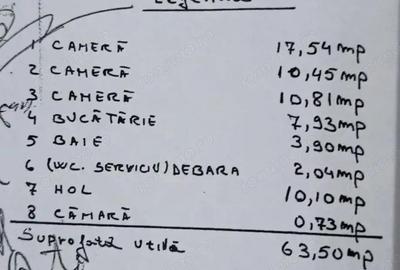 1 CAMERĂ 17,54 mp
2 CAMERĂ 10,45 mp
3 CAMERĂ 10,81 mp
4 BUCĂTĂRIE 7,93 mp
5 BAIE 3,90 mp
6 (WC. SERVICIU) DEBARA 2,04 mp
7 HOL 10,10 mp
8 CĂMARĂ 0,73 mp
Suprafată utilă 63,50 mp